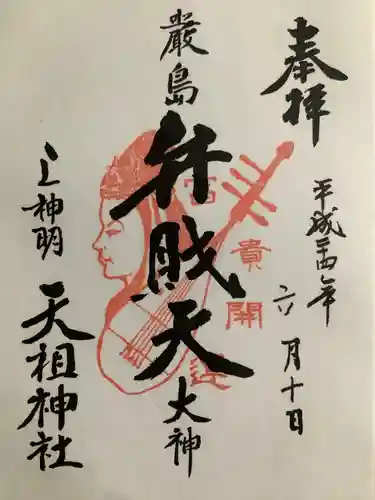 奉拝
平成二十四年
六月十日
巌島
弁財天
大神
富貴開運
上神明
天祖神社